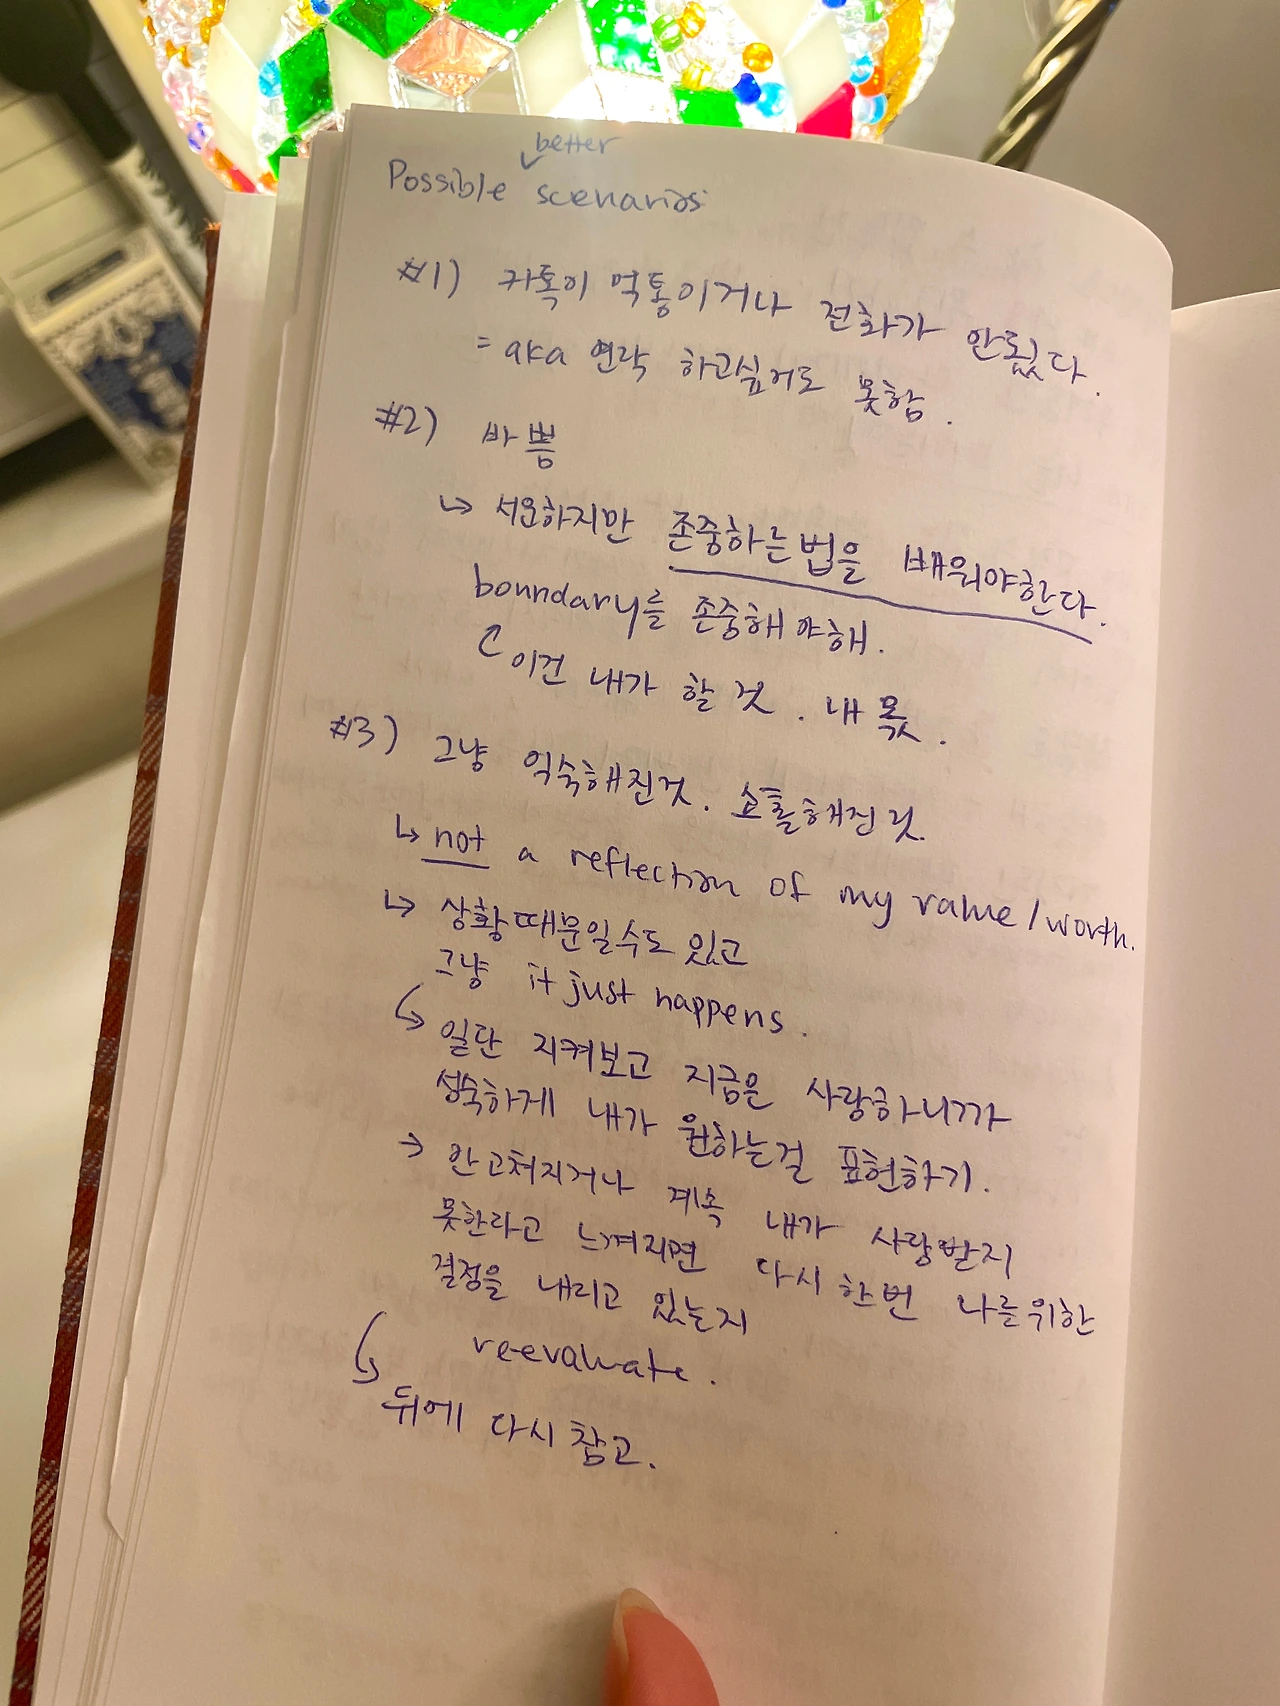 Possible better scenarios:
#1) 카톡이 먹통이거나 전화가 안됬다.
= aka 연락 하고싶어도 못함.
#2) 바쁨
↳ 서운하지만 존중하는법을 배워야한다.
boundary를 존중해야해.
이건 내가 할 것. 내 몫.
#3) 그냥 익숙해진것. 소홀해진것.
↳ not a reflection of my value/worth.
↳ 상황때문일수도 있고
그냥 it just happens.
↳ 일단 지켜보고 지금은 사랑하니까
성숙하게 내가 원하는걸 표현하기.
→ 안고쳐지거나 계속 내가 사랑받지
못한라고 느껴지면 다시한번 나를위한
결정을 내리고 있는지
re-evaluate.
↳ 뒤에 다시 참고.